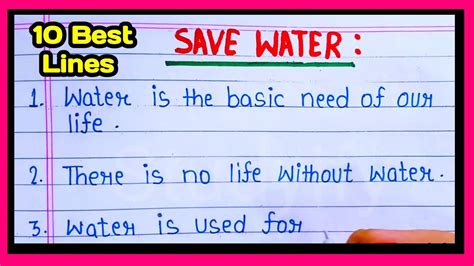 10 Best
Lines
SAVE WATER :
1. Water is the basic need of our
life .
2. There is no life without water .
3. Water is used for